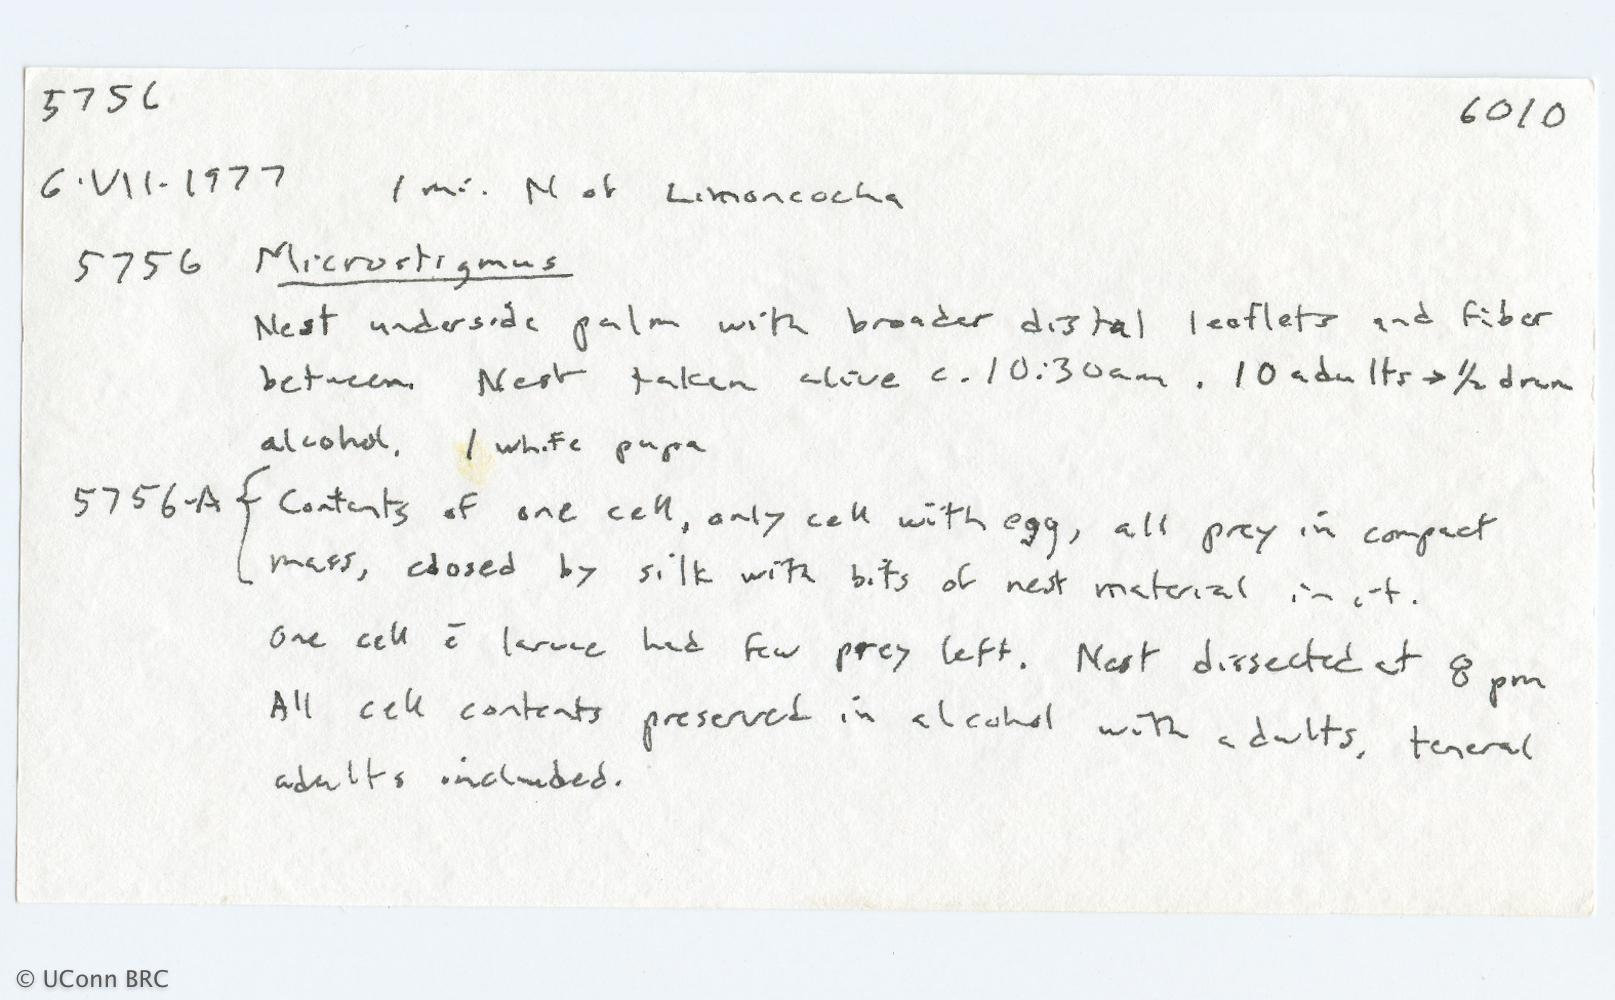 5756 6010
6·VII·1977 1 mi. N of Limoncocha
5756 Microstigmus
Nest underside palm with broader distal leaflets and fiber
between. Nest taken alive c. 10:30am. 10 adults → 1/2 dram
alcohol. 1 white pupa
5756-A { Contents of one cell, only cell with egg, all prey in compact
mass, closed by silk with bits of nest material in it.
One cell c̄ larvae had few prey left. Nest dissected at 8 pm
All cell contents preserved in alcohol with adults, teneral
adults included.
© UConn BRC